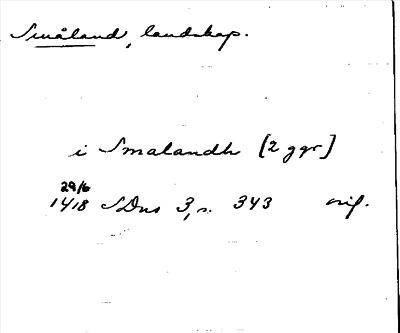 Småland, landskap.
i Smalandh [2 ggr]
29/6
1418 SDns 3, s. 343 orig.